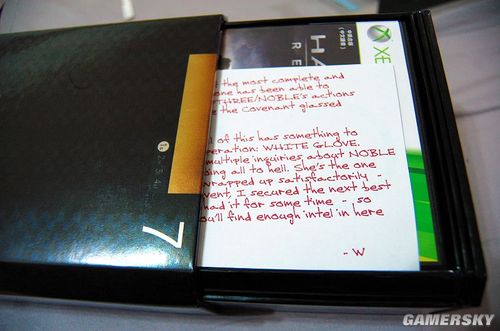 XE
HA
RE
t the most complete and
one has been able to
THREE/NOBLE's actions
e the Covenant glassed
of this has something to
eration: WHITE GLOVE.
multiple inquiries about NOBLE
oing all to hell. She's the one
wrapped up satisfactorily -
vent, I secured the next best
had it for some time - so
ou'll find enough intel in here
- W
1 2 3 4
7
GAMERSKY